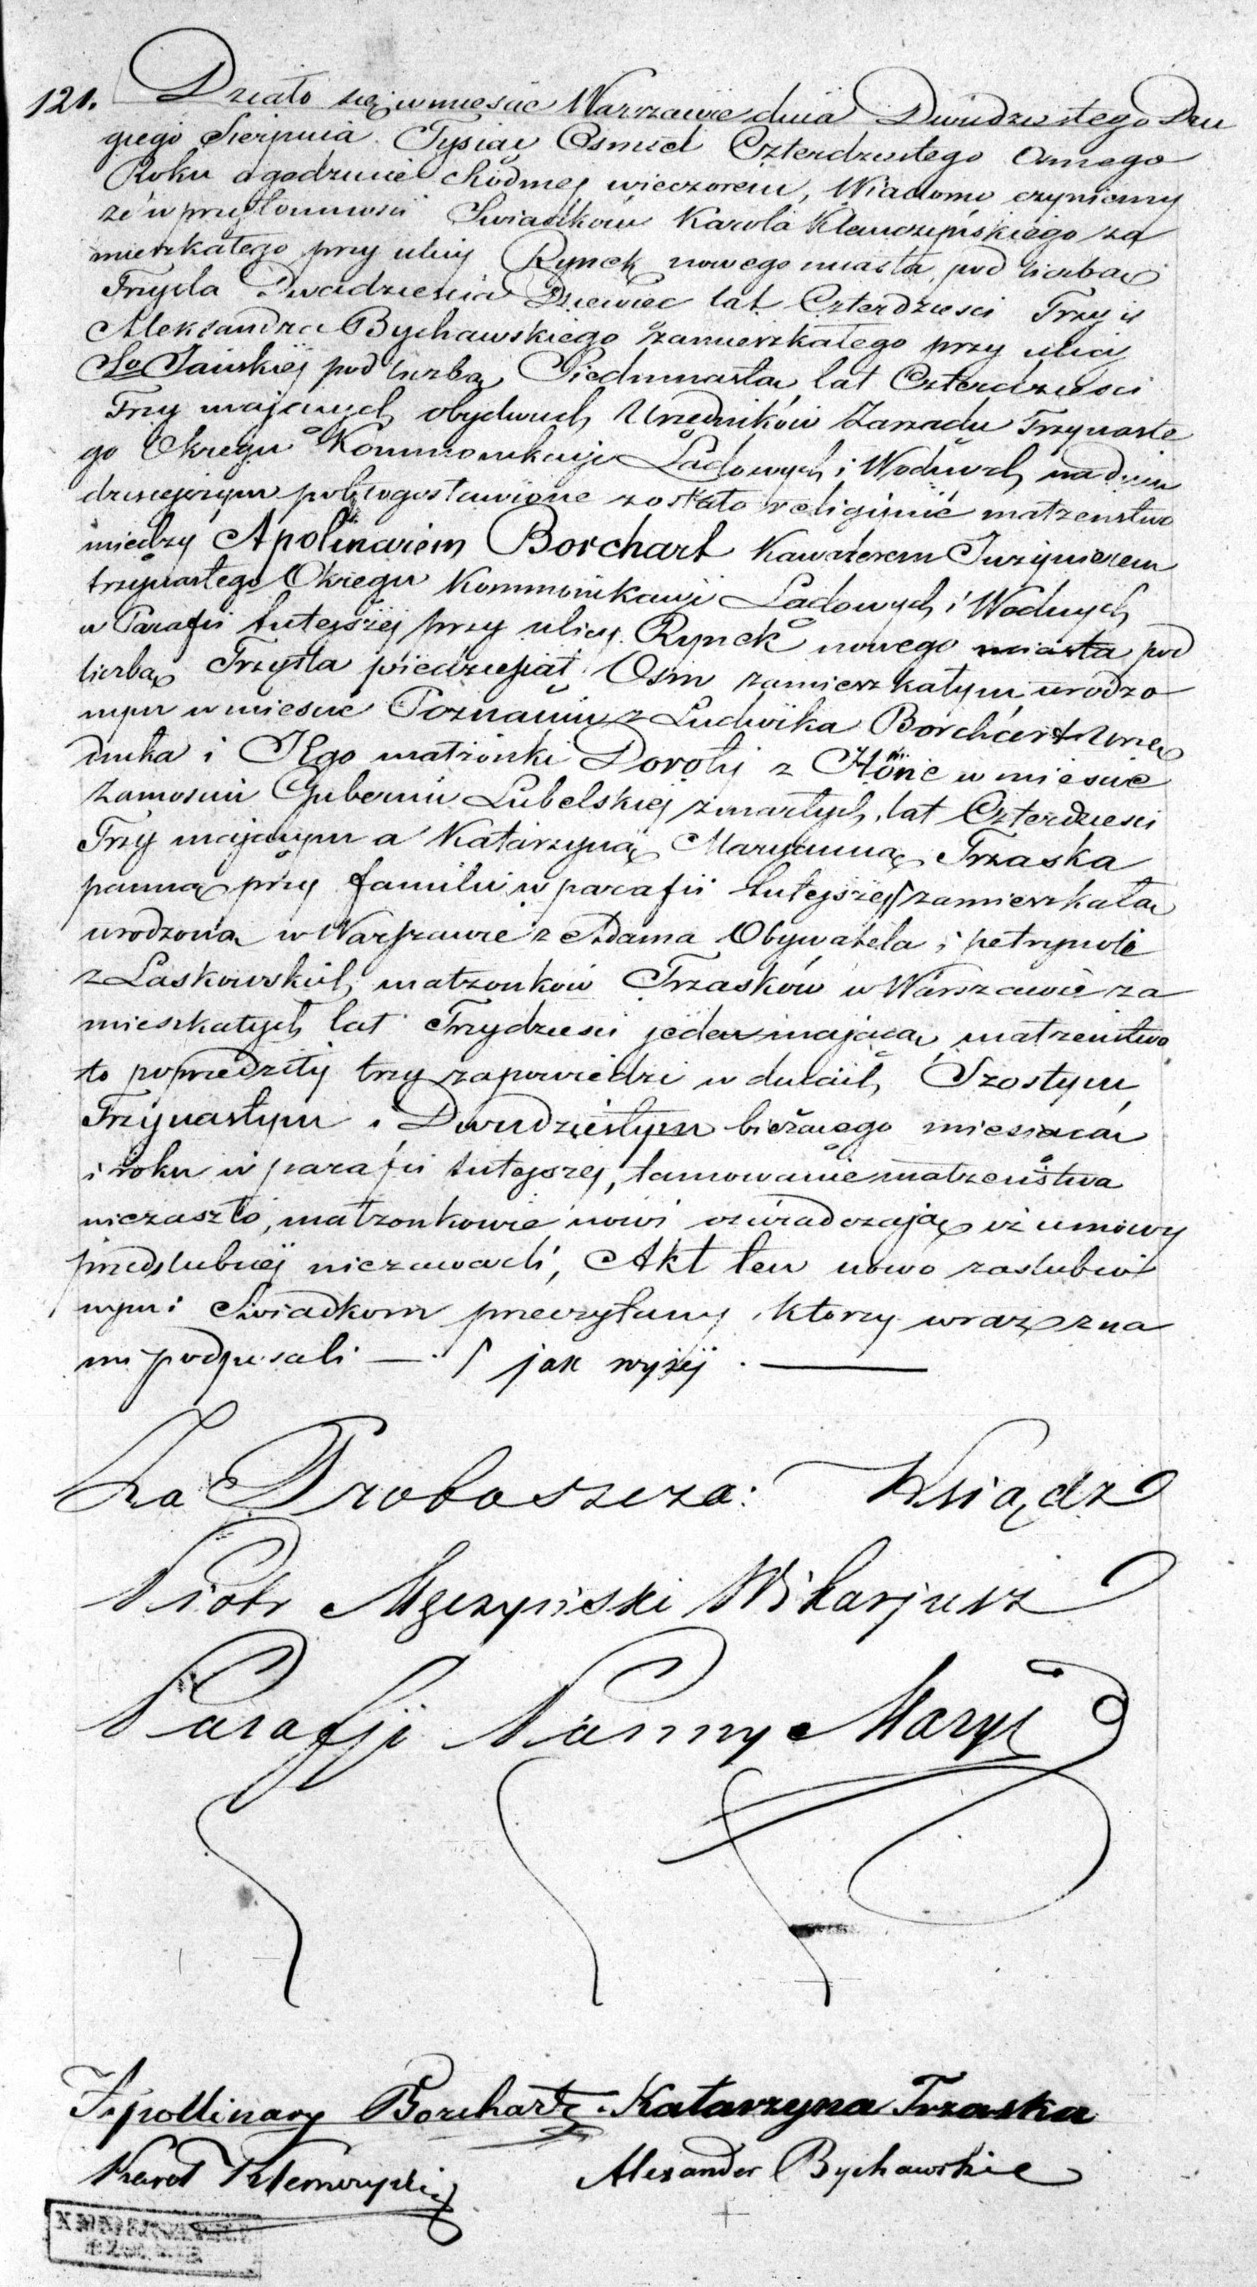 121. Działo się w miescie Warszawie dnia Dwudziestego Dru
giego Sierpnia Tysiąc Osmset Czterdziestego Osmego
Roku o godzinie siódmej wieczorem, Wiadomo czyniemy
że w przytomnosci Swiadków Karola Klemczyńskiego za
mieszkałego przy ulicy Rynek nowego miasta pod liczbą
Trzysta Dwadziescia Dziewięc lat Czterdziesci Trzy i
Alexandra Bychawskiego zamieszkałego przy ulicy
So Jańskiej pod liczbą Siedmnastą lat Czterdziesci
Trzy mających obydwuch Urzędników Zarządu Trzynaste
go Okręgu Kommunikacyi Lądowych i Wodnych na dniu
dzisiejszym pobłogosławione zostało religijnie małzenstwo
między Apolinarem Borchart Kawalerem Inzynierem
trzynastego Okręgu Kommunikacyi Lądowych i Wodnych
w Parafii tutejszej przy ulicy Rynek nowego miasta pod
liczbą Trzysta piędziesiąt Osm zamieszkałym urodzo
nym w miescie Poznaniu z Ludwika Borchart Urzę
dnika i Jego małżonki Doroty z Höne w miescie
Zamosciu Gubernii Lubelskiej zmarłych, lat Czterdziesci
Trzy mającym a Katarzyną Maryanną Trzaska
panną przy familii w parafii tutejszej / zamieszkałą
urodzoną w Warszawie z Adama Obywatela i petrynoli
z Laskowskich małzonków Trzasków w Warszawie za
mieszkałych lat Trzydziesci jeden mającą, małzeństwo
to poprzedziły trzy zapowiedzi w dniach Szostym
Trzynastym i Dwudziestym bieżącego miesiąca
i roku w parafii tutejszej, tamowanie małzeństwa
niezaszło, małzonkowie nowi oświadczają iż umowy
przedslubnej niezawarli, Akt ten nowo zaslubio
nym i Swiadkom przeczytany, którzy wraz z na
mi podpisali — / jak wyżej. —
Za Proboszcza: Ksiądz
Piotr Mączyński Wikarjusz
Parafji Panny Maryi
Apollinary Borchartz Katarzyna Trzaska
Karol Klemczyński Alexander Bychawski